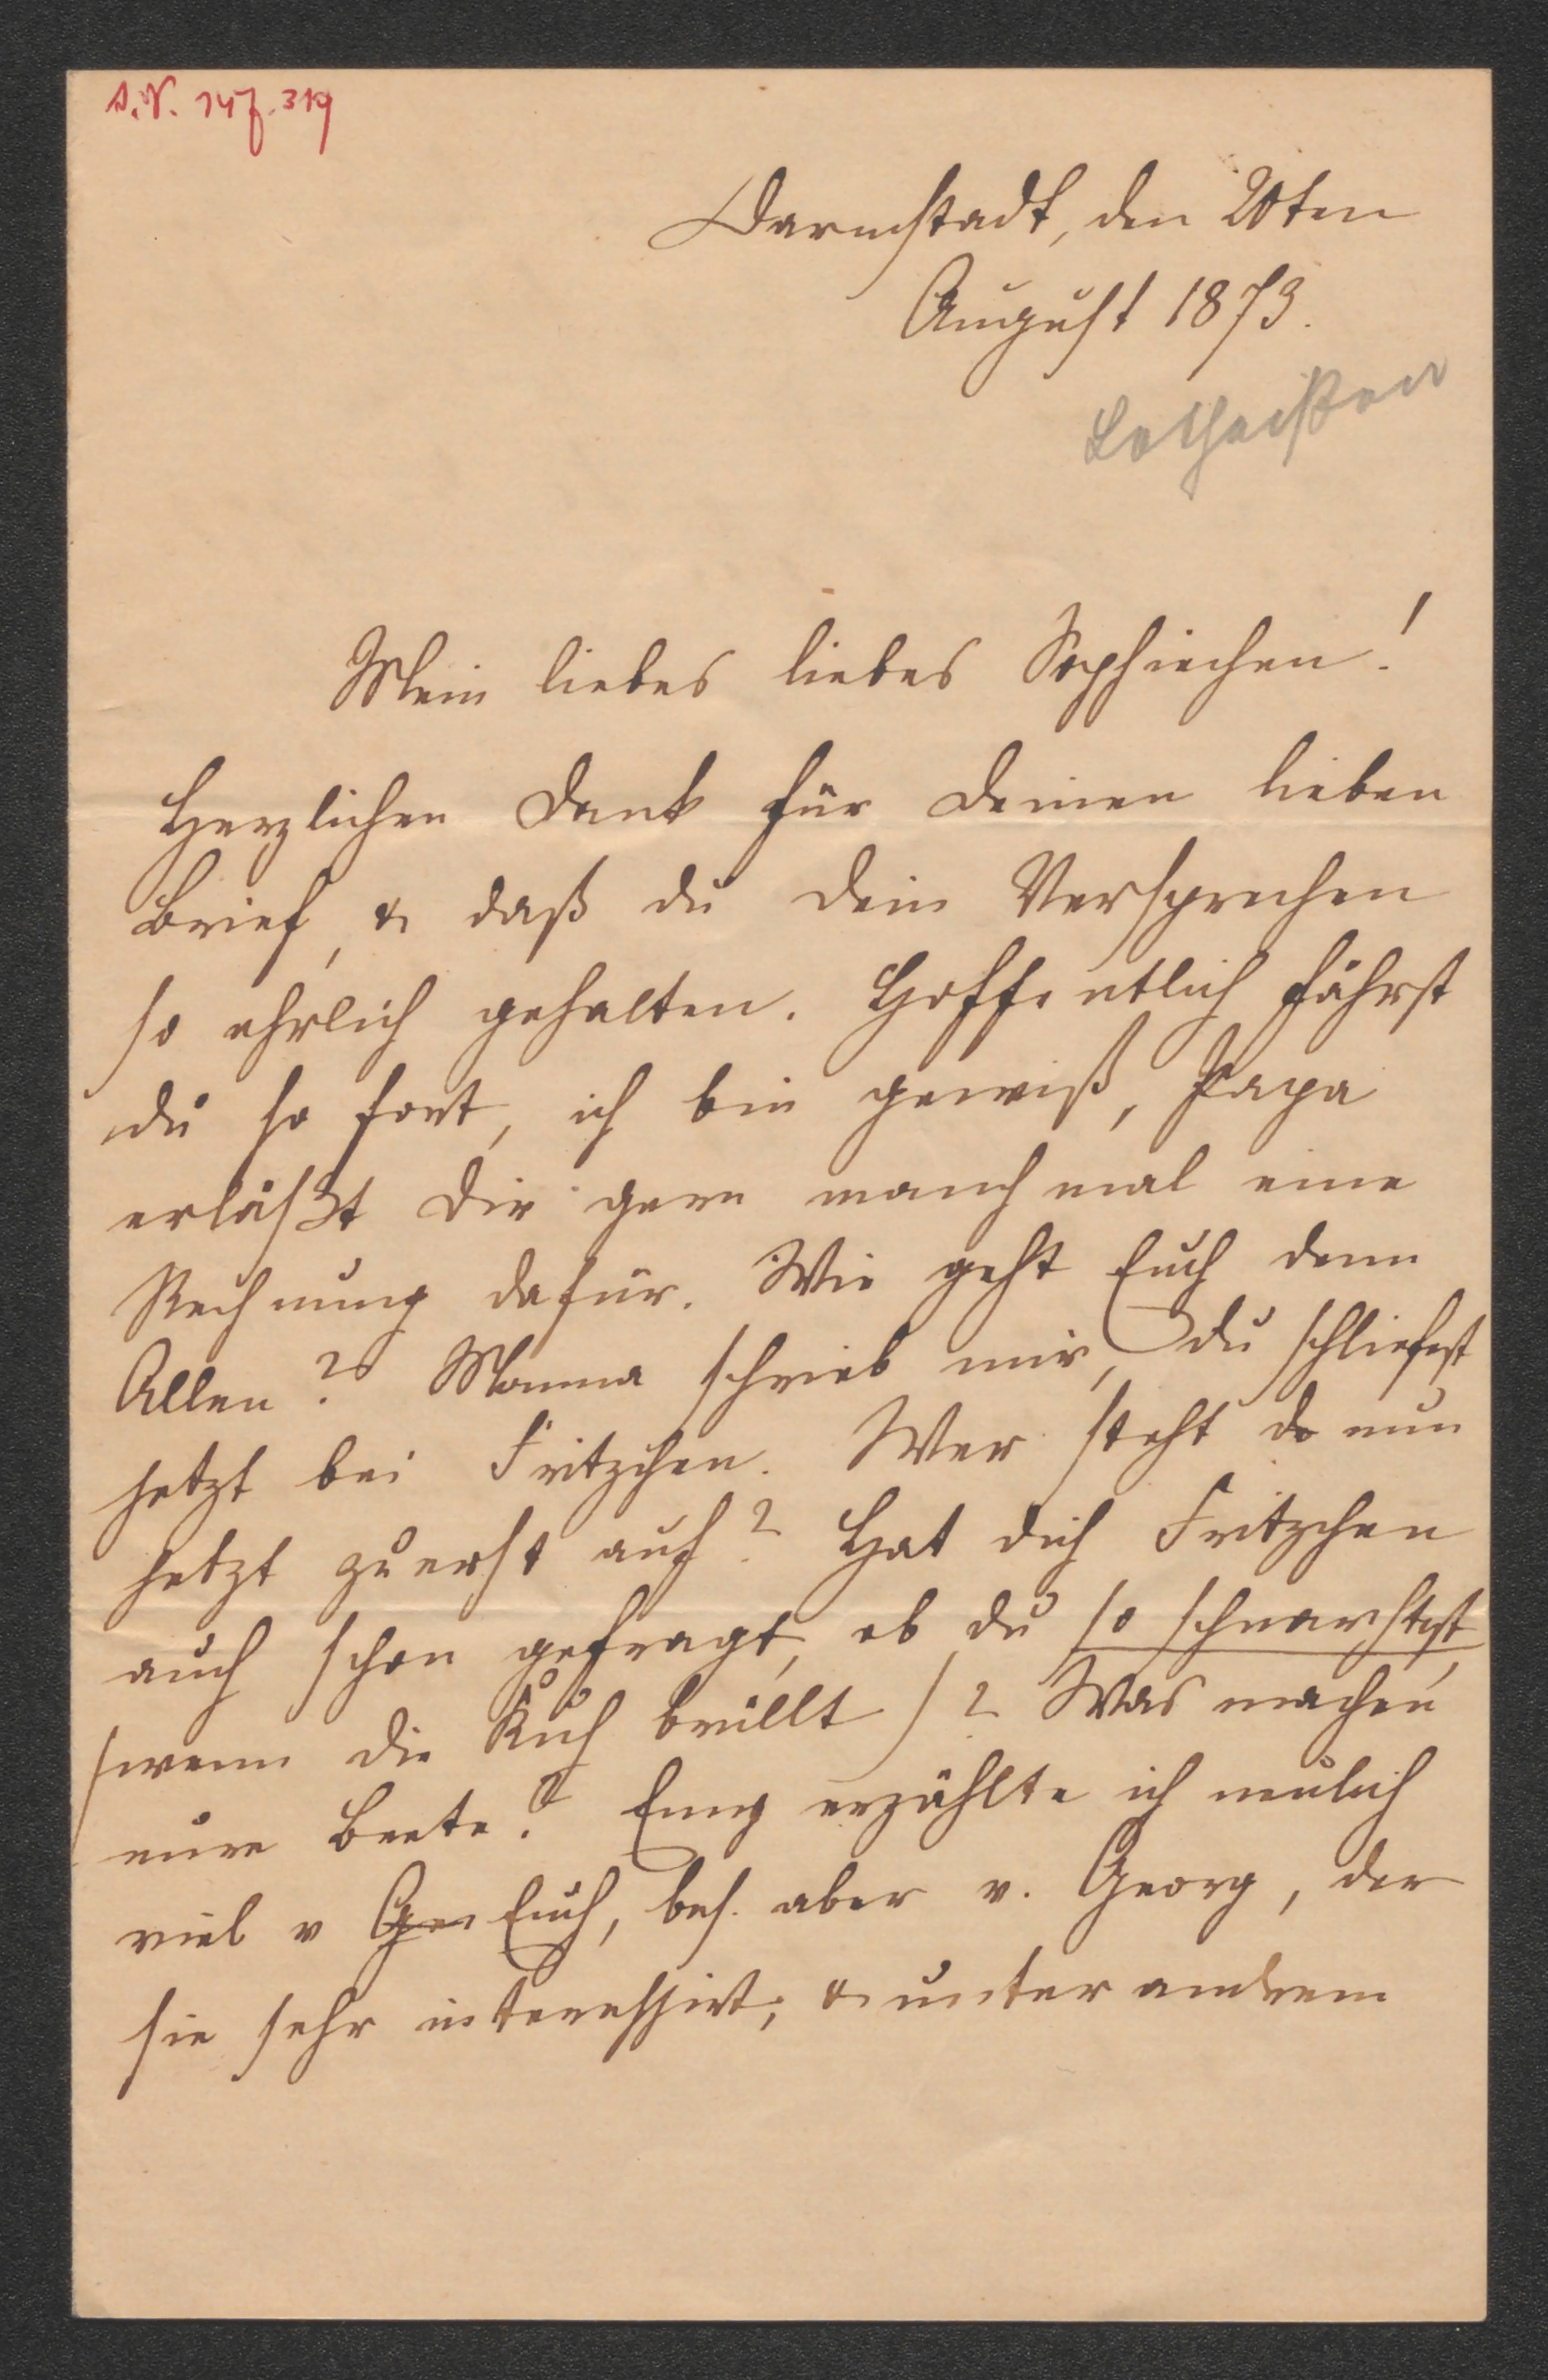 S. N. 147.319
Darmstadt, den 20ten
August 1873.
Lotheißen
Mein liebes liebes Sophiechen!
Herzlichen Dank für deinen lieben
Brief, & daß du dein Versprechen
so ehrlich gehalten. Hoffentlich fährst
du so fort, ich bin gewiß, Papa
erläßt dir gern manchmal eine
Rechnung dafür. Wie geht Euch denn
Allen? Mama schrieb mir, du schliefest
jetzt bei Fritzchen. Wer steht da nun
jetzt zuerst auf? Hat dich Fritzchen
auch schon gefragt, ob du so schnarchtest,
(wenn die Kuh brüllt)? Was machen
eure Beete? Emy erzählte ich neulich
viel v Geo Euch, bes. aber v. Georg, der
sie sehr interessirt; & unter andrem